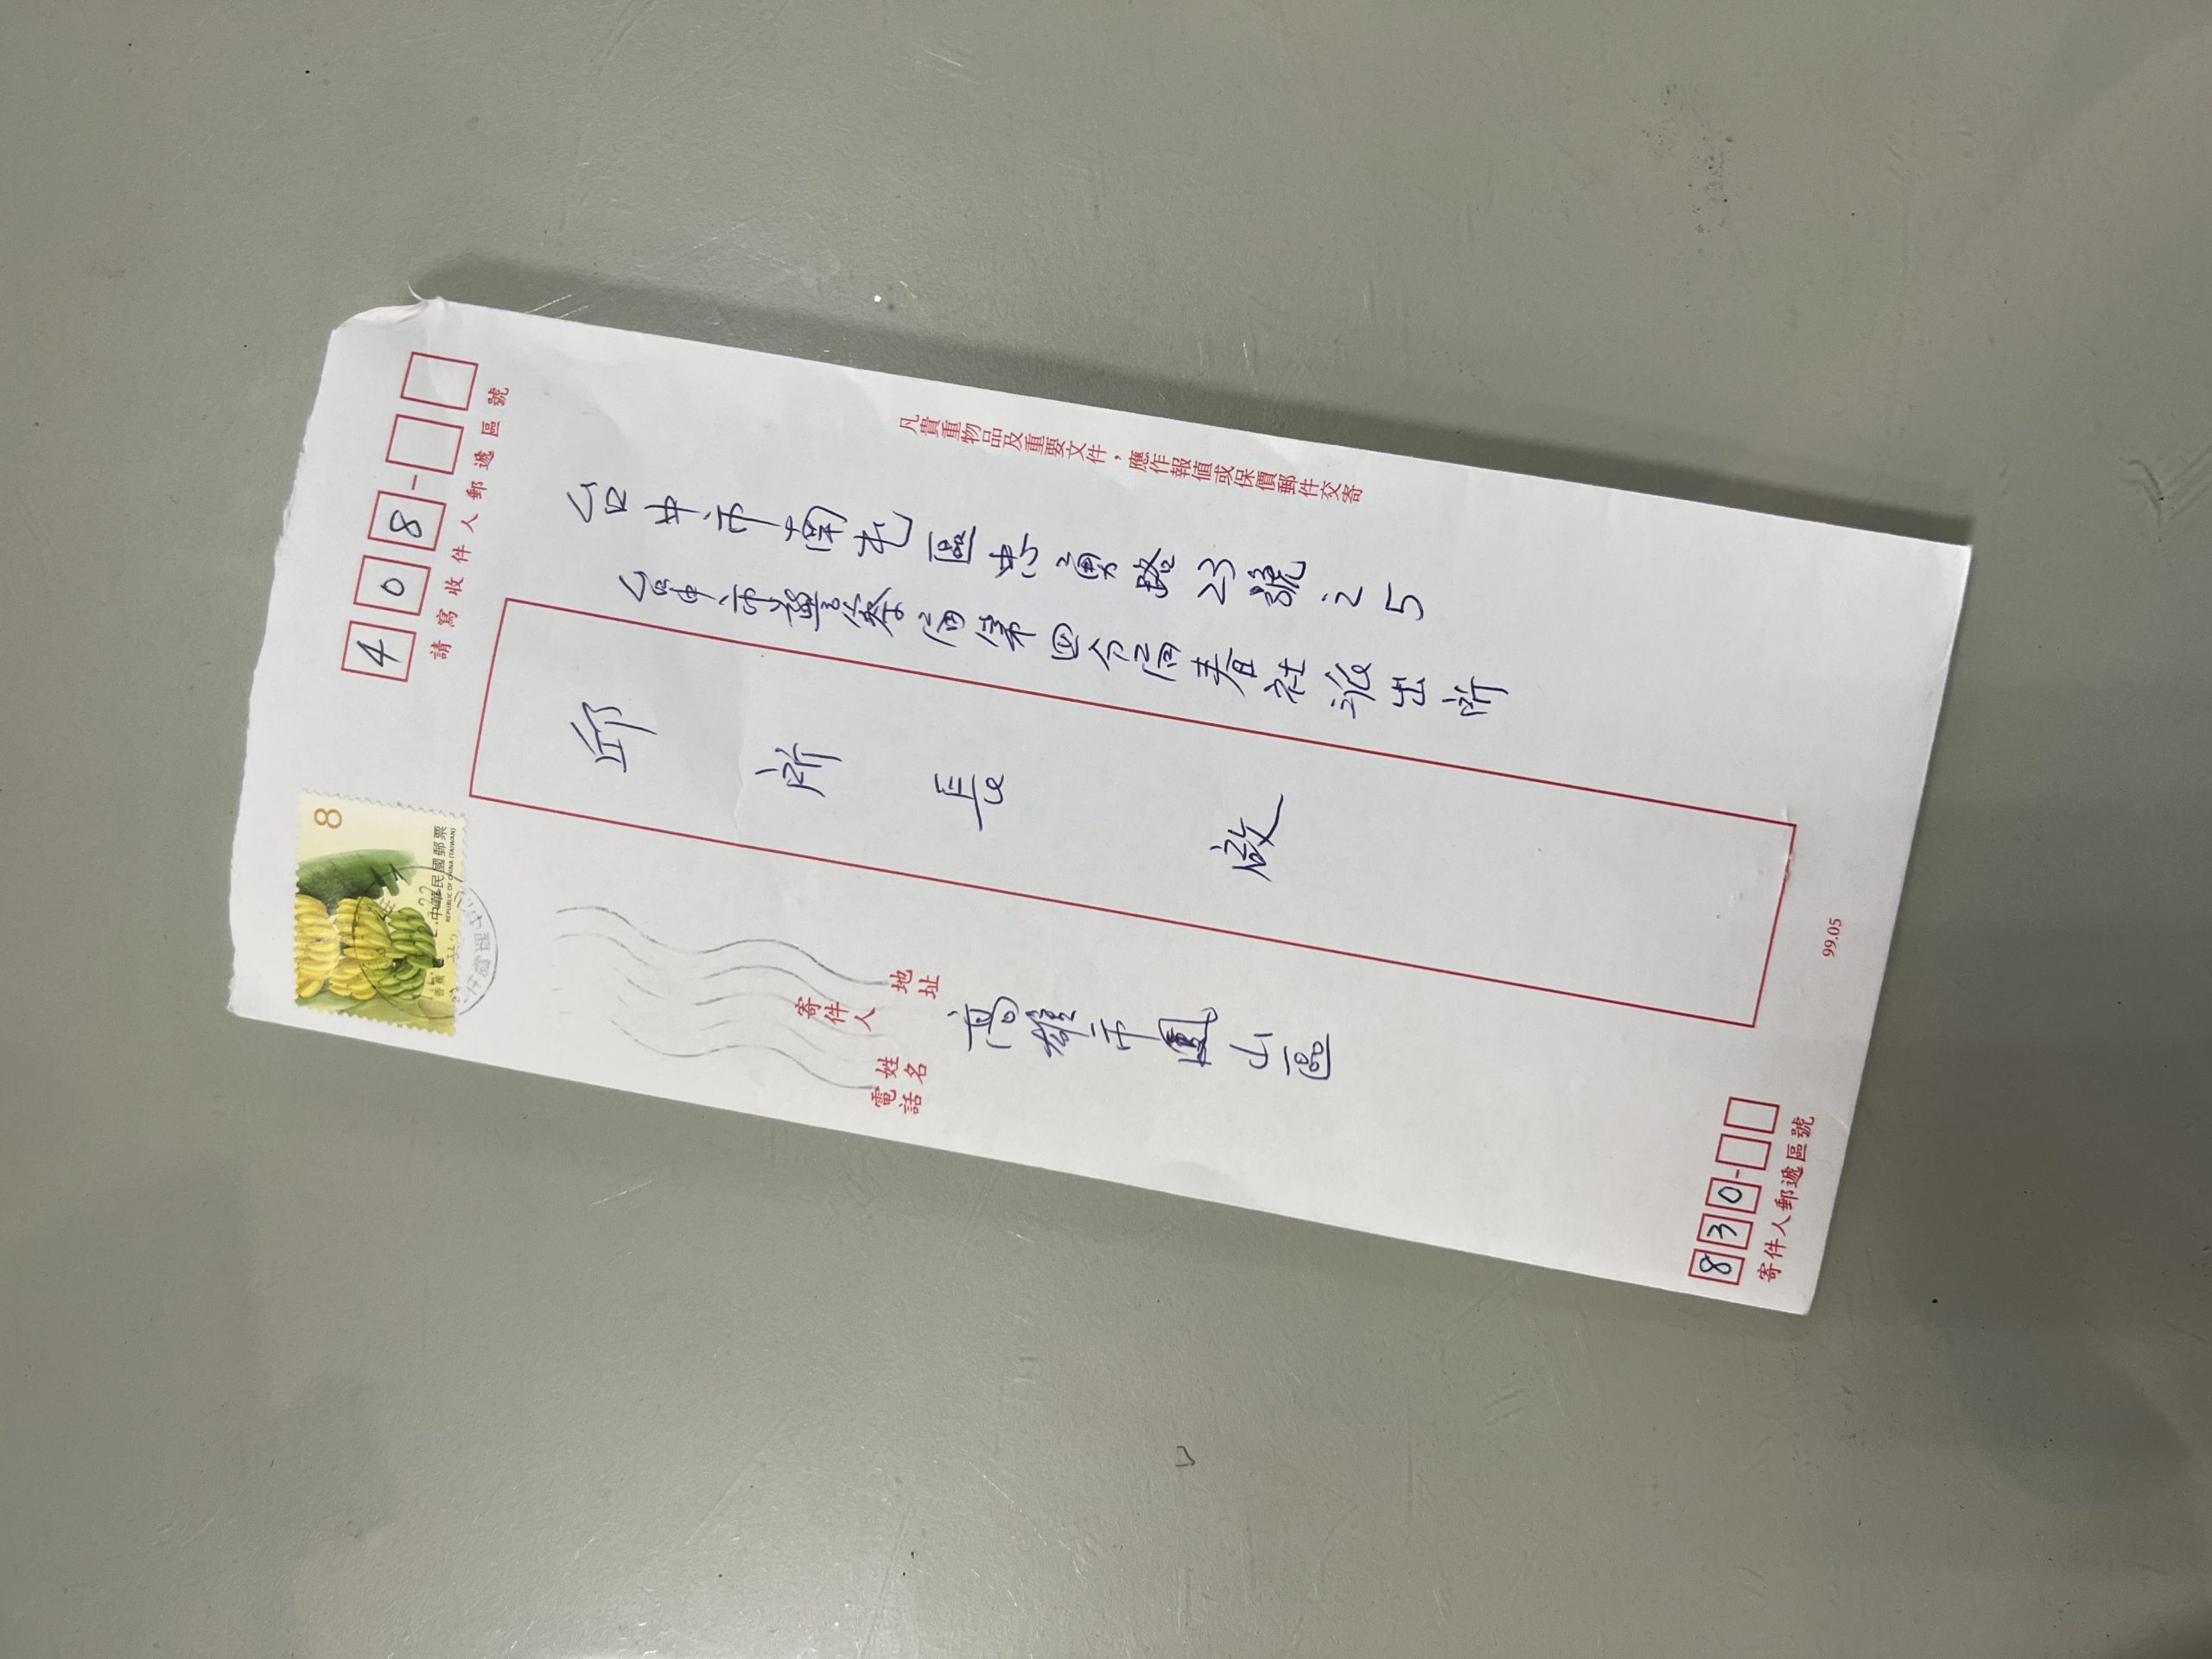 408-
請寫收件人郵遞區號
凡貴重物品及重要文件，應作報值或保價郵件交寄
台中市南屯區忠勇路23號之5
台中市警察局第四分局春社派出所
邱所長 啟
8
中華民國郵票
REPUBLIC OF CHINA (TAIWAN)
香蕉
寄件人
地址
姓名
電話
高雄市鳳山區
830-
寄件人郵遞區號
99.05